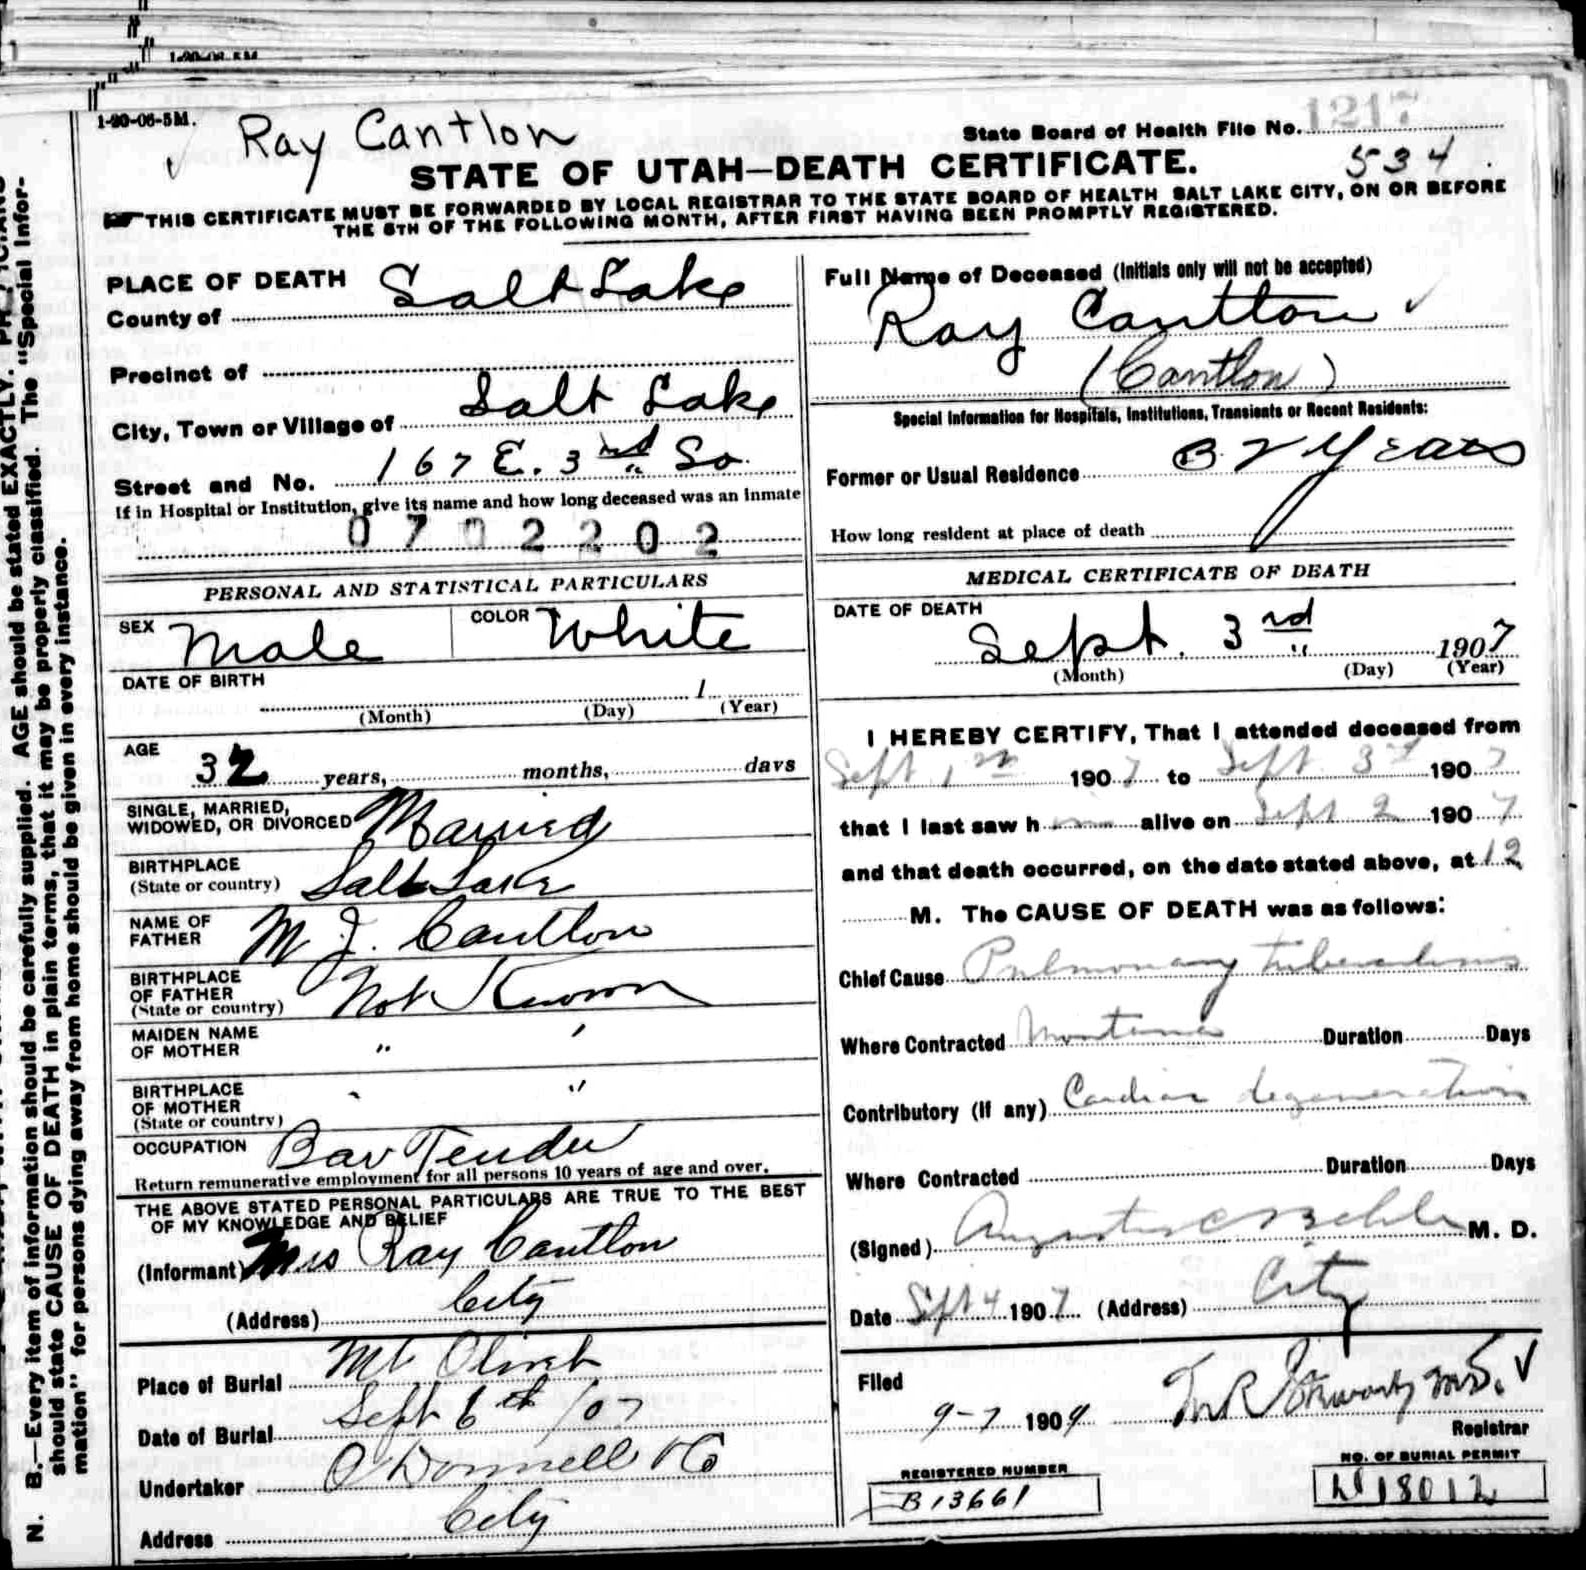 1-20-06-5M
1-20-06-5M.
Ray Cantlon
State Board of Health File No. 1217
534
STATE OF UTAH—DEATH CERTIFICATE.
THIS CERTIFICATE MUST BE FORWARDED BY LOCAL REGISTRAR TO THE STATE BOARD OF HEALTH SALT LAKE CITY, ON OR BEFORE
THE 5TH OF THE FOLLOWING MONTH, AFTER FIRST HAVING BEEN PROMPTLY REGISTERED.
PLACE OF DEATH
County of Salt Lake
Precinct of
City, Town or Village of Salt Lake
Street and No. 167 E. 3rd So.
If in Hospital or Institution, give its name and how long deceased was an inmate
0702202
Full Name of Deceased (Initials only will not be accepted)
Ray Cantton
(Cantlon)
Special Information for Hospitals, Institutions, Transients or Recent Residents:
Former or Usual Residence 32 Years
How long resident at place of death
PERSONAL AND STATISTICAL PARTICULARS
SEX Male COLOR White
DATE OF BIRTH
1
(Month) (Day) (Year)
AGE
32 years, months, days
SINGLE, MARRIED,
WIDOWED, OR DIVORCED Married
BIRTHPLACE
(State or country) Salt Lake
NAME OF
FATHER M J. Cantlon
BIRTHPLACE
OF FATHER
(State or country) Not Known
MAIDEN NAME
OF MOTHER " "
BIRTHPLACE
OF MOTHER " "
(State or country)
OCCUPATION Bar Tender
Return remunerative employment for all persons 10 years of age and over.
THE ABOVE STATED PERSONAL PARTICULARS ARE TRUE TO THE BEST
OF MY KNOWLEDGE AND BELIEF
(Informant) Mrs Ray Cantlon
(Address) City
Place of Burial Mt Olivet
Date of Burial Sept 6th /07
Undertaker O'Donnell & Co
Address City
MEDICAL CERTIFICATE OF DEATH
DATE OF DEATH
Sept. 3rd 1907
(Month) (Day) (Year)
I HEREBY CERTIFY, That I attended deceased from
Sept 1st 1907 to Sept. 3d 1907
that I last saw him alive on Sept 2 1907
and that death occurred, on the date stated above, at 12
M. The CAUSE OF DEATH was as follows:
Chief Cause Pulmonary tuberculosis
Where Contracted Montana Duration Days
Contributory (if any) Cardiac degeneration
Where Contracted Duration Days
(Signed) Augustus C Behle M. D.
Date Sept 4 1907 (Address) City
Filed
9-7 1907 M.D.
Registrar
REGISTERED NUMBER
B13661
NO. OF BURIAL PERMIT
18012
N. B.—Every item of information should be carefully supplied. AGE should be stated EXACTLY.
should state CAUSE OF DEATH in plain terms, that it may be properly classified. The "Special Infor-
mation" for persons dying away from home should be given in every instance.